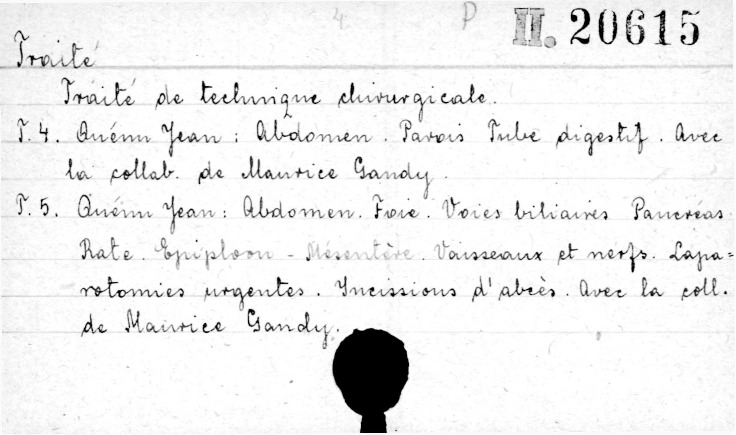 4 P II. 20615
Traité
Traité de technique chirurgicale.
T. 4. Quénu Jean: Abdomen. Parois Tube digestif. Avec
la collab. de Maurice Gandy.
T. 5. Quénu Jean: Abdomen. Foie. Voies biliaires Pancréas
Rate. Epiploon - Mésentère. Vaisseaux et nerfs. Lapa=
rotomies urgentes. Incissions d'abcès. Avec la coll.
de Maurice Gandy.